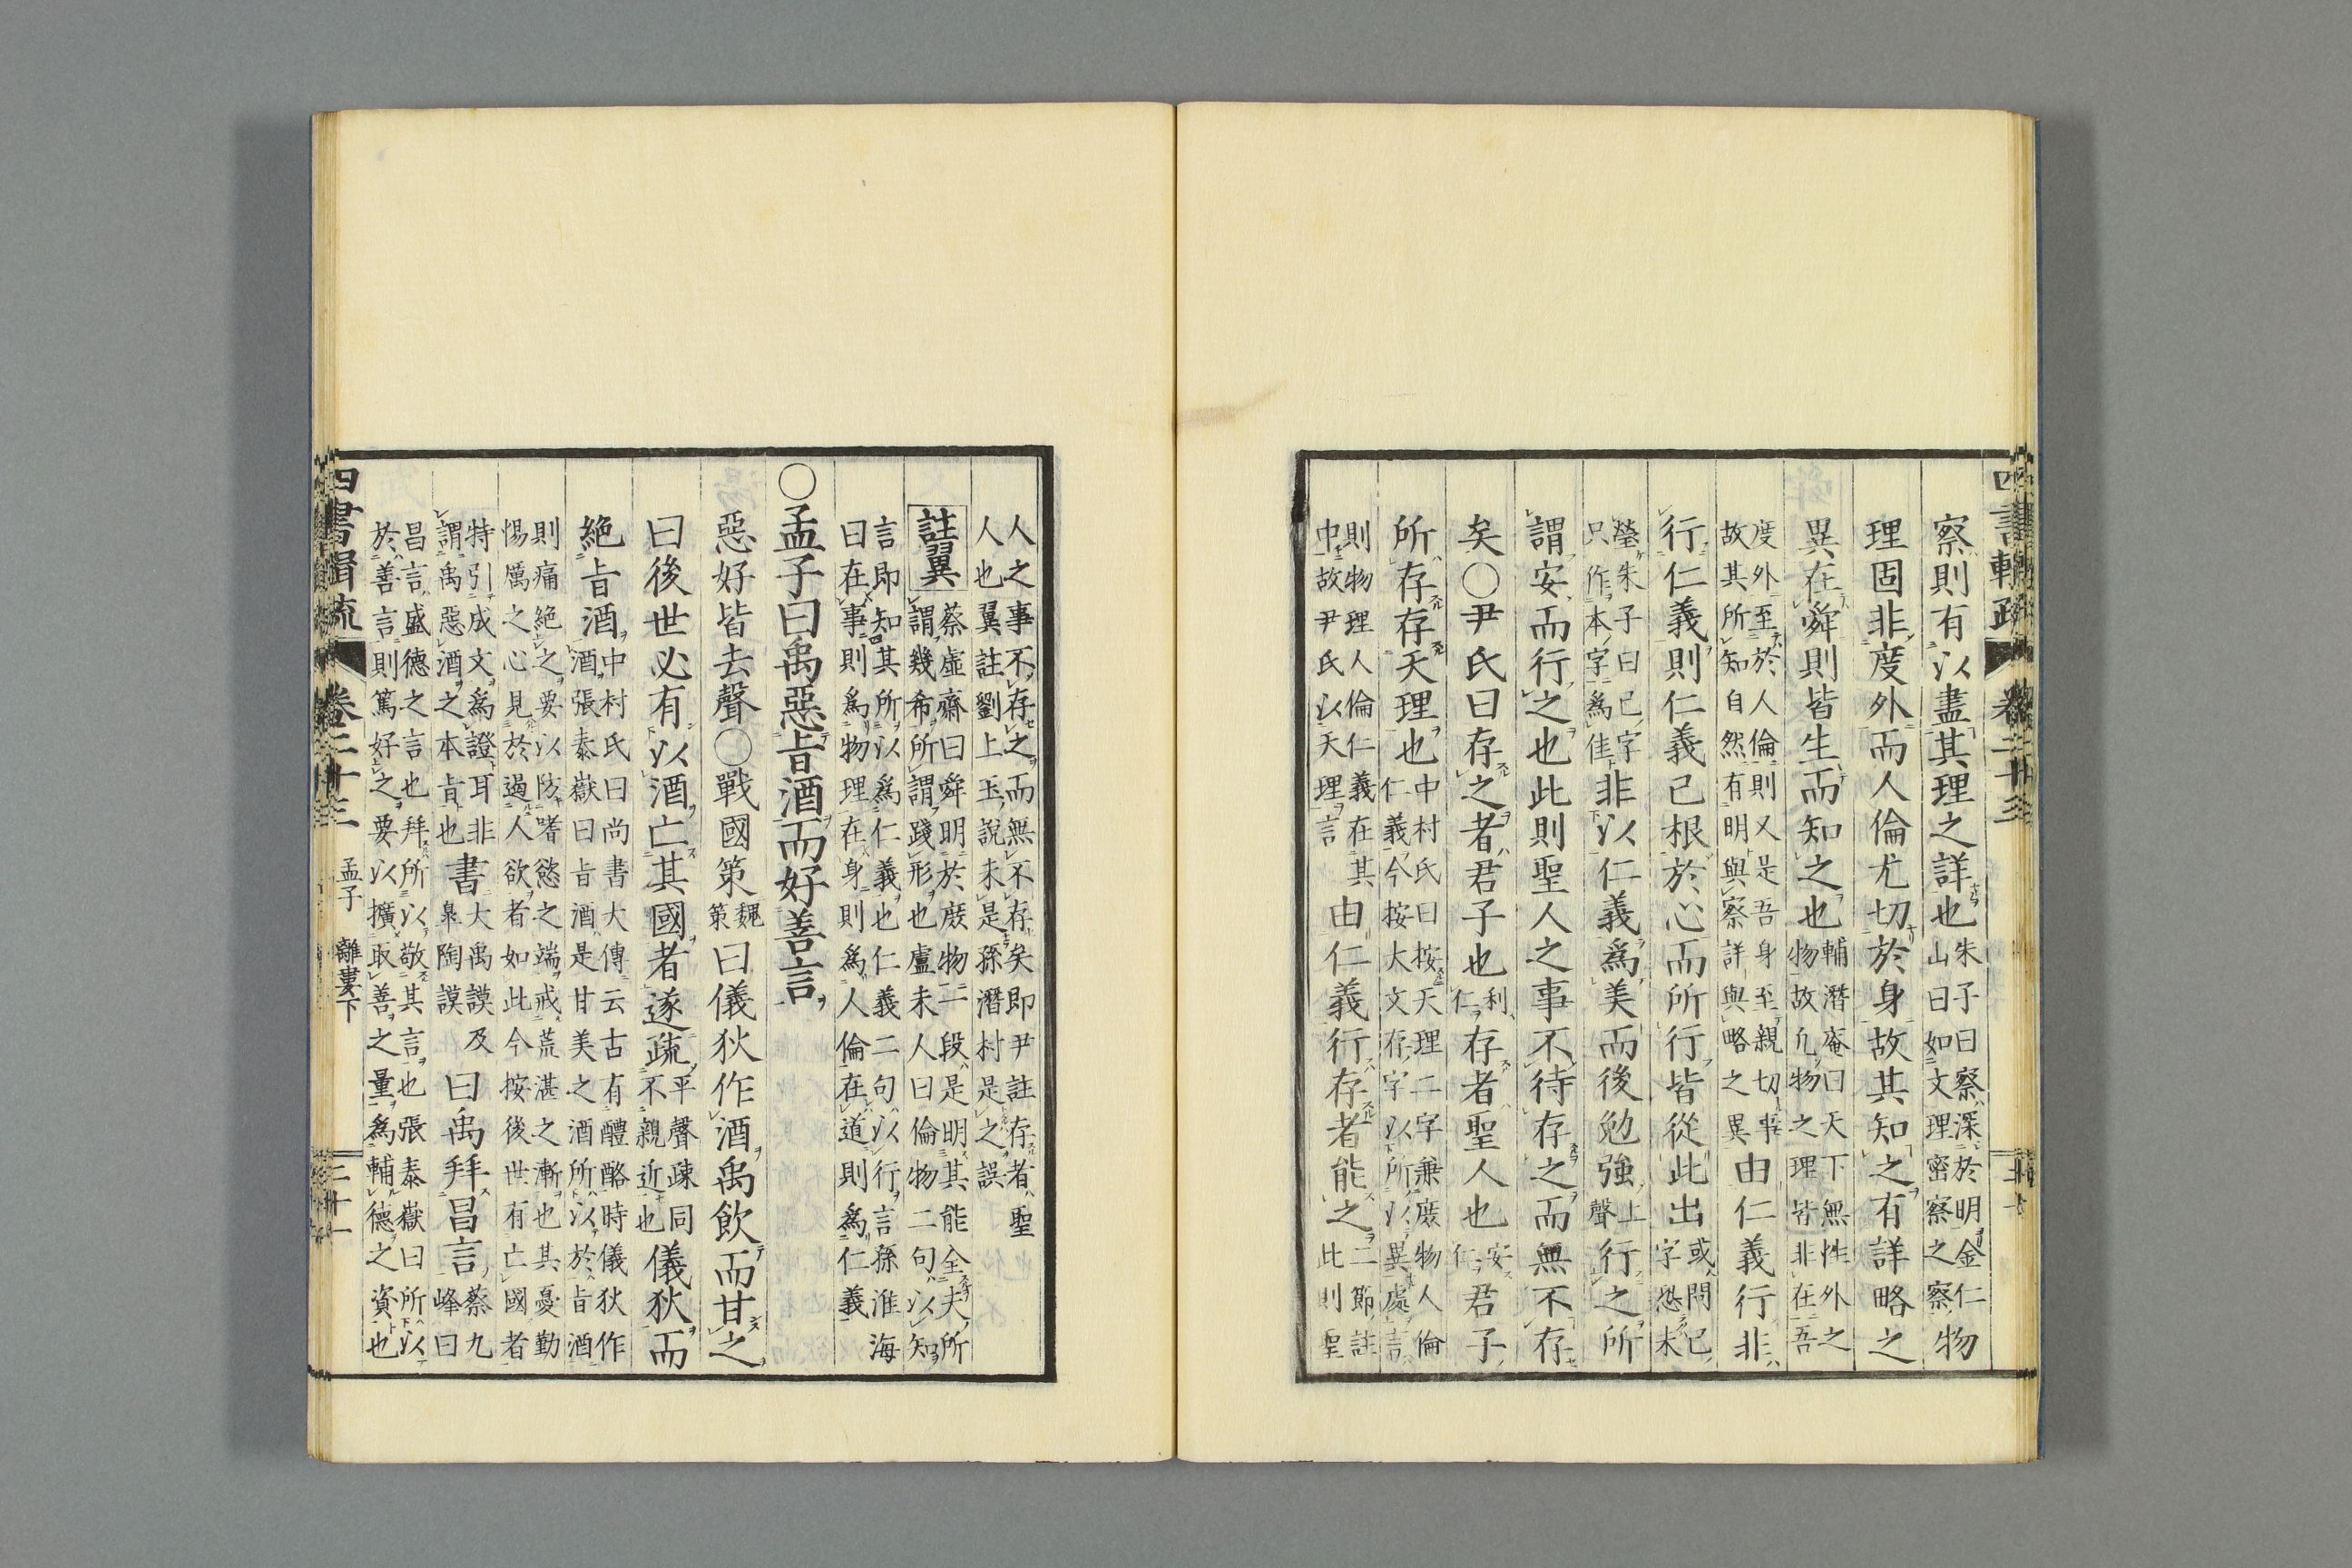 四書輯疏 卷二十三
察則有以盡其理之詳也朱子曰察深於明金仁山曰如文理密察之察物
理固非度外而人倫尤切於身故其知之有詳略之
異在舜則皆生而知之也輔潛庵曰天下無性外之物故凡物之理皆非在吾
度外至於人倫則又是吾身至親切事故其所知自然有明與察詳與略之異由仁義行非
行仁義則仁義已根於心而所行皆從此出或問已字恐未
瑩朱子曰已字只作本字爲佳非以仁義爲美而後勉強上聲行之所
謂安而行之也此則聖人之事不待存之而無不存
矣○尹氏曰存之者君子也利仁存者聖人也安仁君子
所存存天理也中村氏曰按天理二字兼庶物人倫仁義今按大文存字以所以異處言
則物理人倫仁義在其中故尹氏以天理言由仁義行存者能之二節註此則聖
人之事不存之而無不存矣即尹註存者聖人也翼註劉上玉說未是孫潛村是之誤
註翼蔡虛齋曰舜明於庶物二段是明其能全夫所謂幾希所謂踐形也盧未人曰倫物二句以知
言即知其所以爲仁義也仁義二句以行言孫淮海曰在事則爲物理在身則爲人倫在道則爲仁義
○孟子曰禹惡旨酒而好善言
惡好皆去聲○戰國策魏策曰儀狄作酒禹飲而甘之
曰後世必有以酒亡其國者遂疏平聲疎同不親近也儀狄而
絶旨酒中村氏曰尚書大傳云古有醴酪時儀狄作酒張泰嶽曰旨酒是甘美之酒所以於旨酒
則痛絶之要以防嗜慾之端戒荒湛之漸也其憂勤惕厲之心見於過人欲者如此今按後世有亡國者
特引成文爲證耳非謂禹惡酒之本旨也書大禹謨及皋陶謨曰禹拜昌言蔡九峰曰
昌言盛德之言也拜所以敬其言也張泰嶽曰所以於善言則篤好之要以擴取善之量爲輔德之資也
四書輯疏 卷二十三 孟子 離婁下 二十一